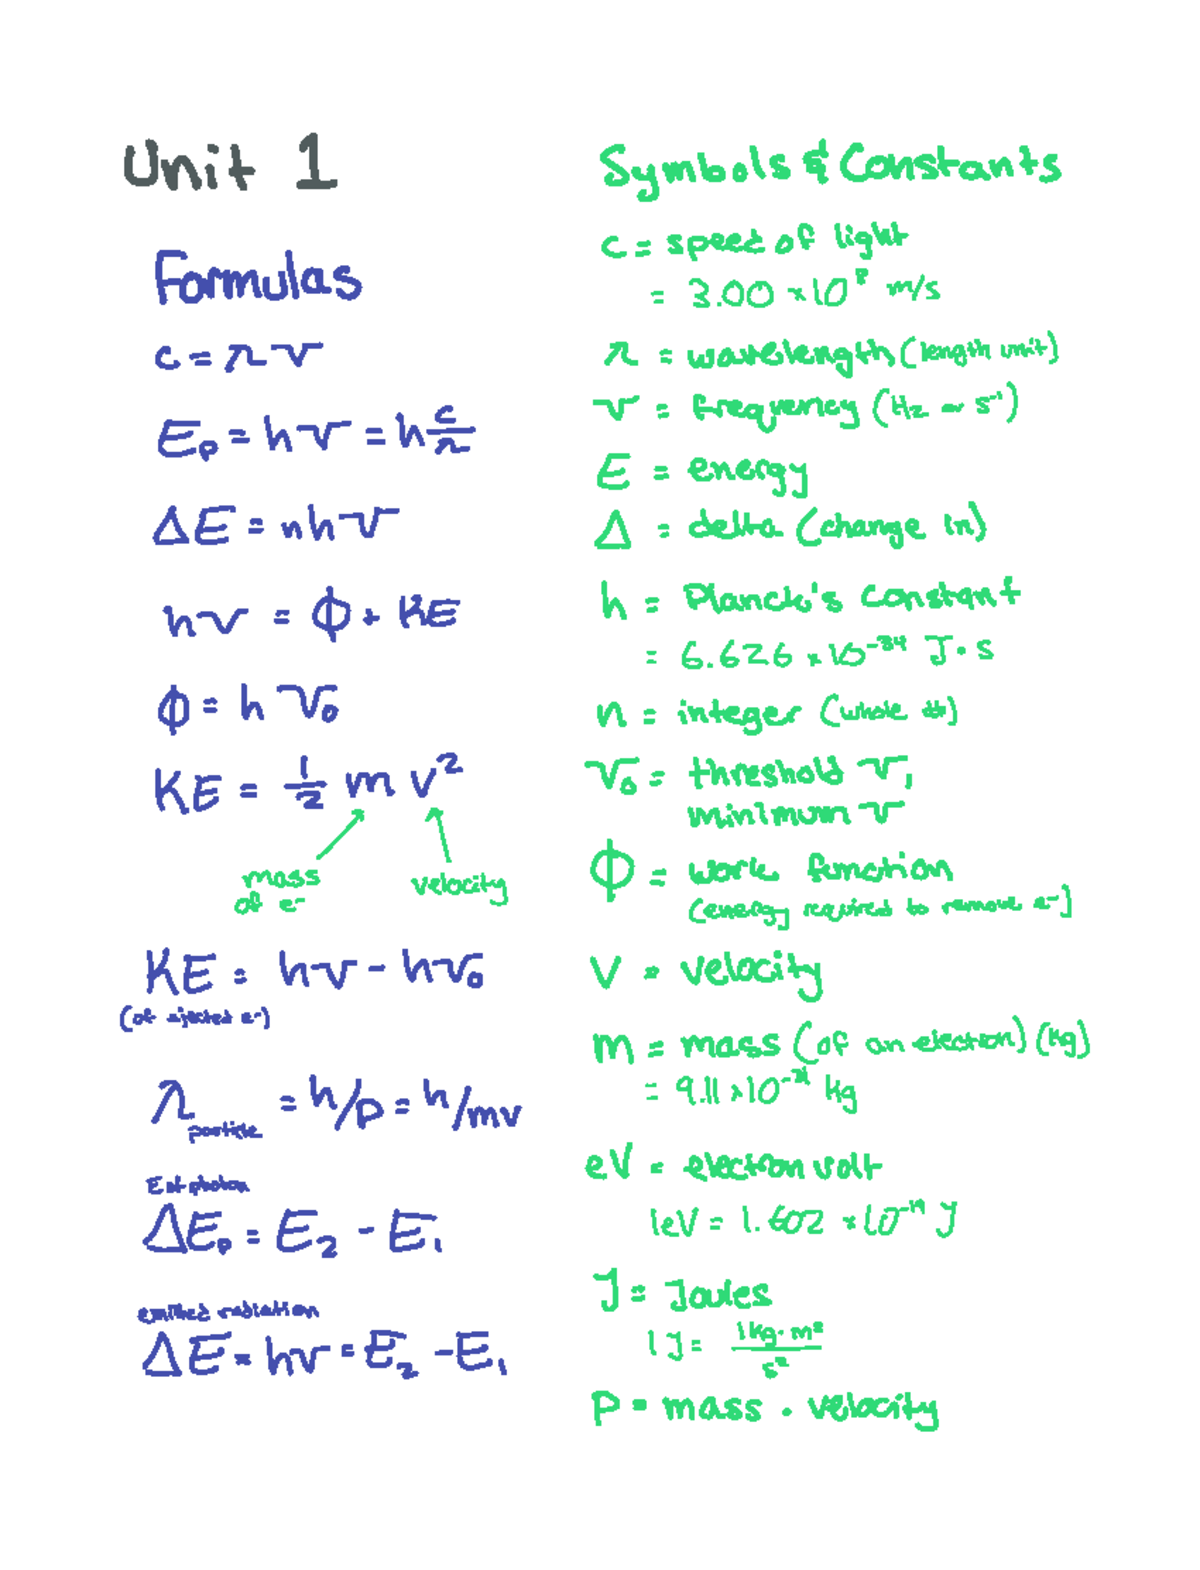 Unit 1
Formulas
c = λν
Eₚ = hν = h c/λ
ΔE = nhν
hν = Φ + KE
Φ = hν₀
KE = 1/2 m v²
mass of e⁻
velocity
KE = hν - hν₀
(of ejected e⁻)
λ particle = h/p = h/mv
E of photon
ΔEₚ = E₂ - E₁
emitted radiation
ΔE = hν = E₂ - E₁
Symbols & Constants
c = speed of light
= 3.00 × 10⁸ m/s
λ = wavelength (length unit)
ν = frequency (Hz or s⁻¹)
E = energy
Δ = delta (change in)
h = Planck's constant
= 6.626 × 10⁻³⁴ J·s
n = integer (whole #)
ν₀ = threshold ν,
minimum ν
Φ = work function
(energy required to remove e⁻)
V = velocity
m = mass (of an electron) (kg)
= 9.11 × 10⁻³¹ kg
eV = electron volt
1eV = 1.602 × 10⁻¹⁹ J
J = Joules
1 J = 1kg·m²/s²
P = mass · velocity